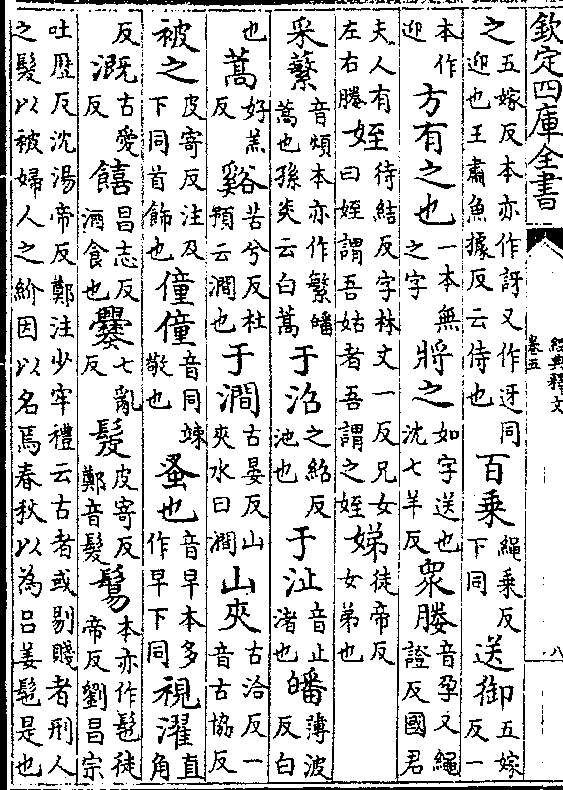 欽定四庫全書 經典釋文 卷五 八
之五嫁反本亦作訝又作迓同迎也王肅魚據反云侍也百乘繩乗反下同送御五嫁反一
本作迎方有之也一本無之字將之如字送也沈七羊反衆媵音孕又繩證反國君
夫人有左右媵姪待結反字林丈一反兄女曰姪謂吾姑者吾謂之姪娣徒帝反女弟也
采蘩音煩本亦作繁皤蒿也孫炎云白蒿于沼之紹反池也于沚音止渚也皤薄波反白
也蒿好羔反谿苦兮反杜預云澗也于澗古晏反山夾水曰澗山夾古洽反一音古協反
被之皮寄反注及下同首飾也僮僮音同竦敬也蚤也音早本多作早下同視濯直角
反溉古愛反饎昌志反酒食也爨七亂反髲皮寄反鄭音髲鬄本亦作髢徒帝反劉昌宗
吐歴反沈湯帝反鄭注少牢禮云古者或剔賤者刑人之髮以被婦人之紒因以名焉春秋以為吕姜髢是也